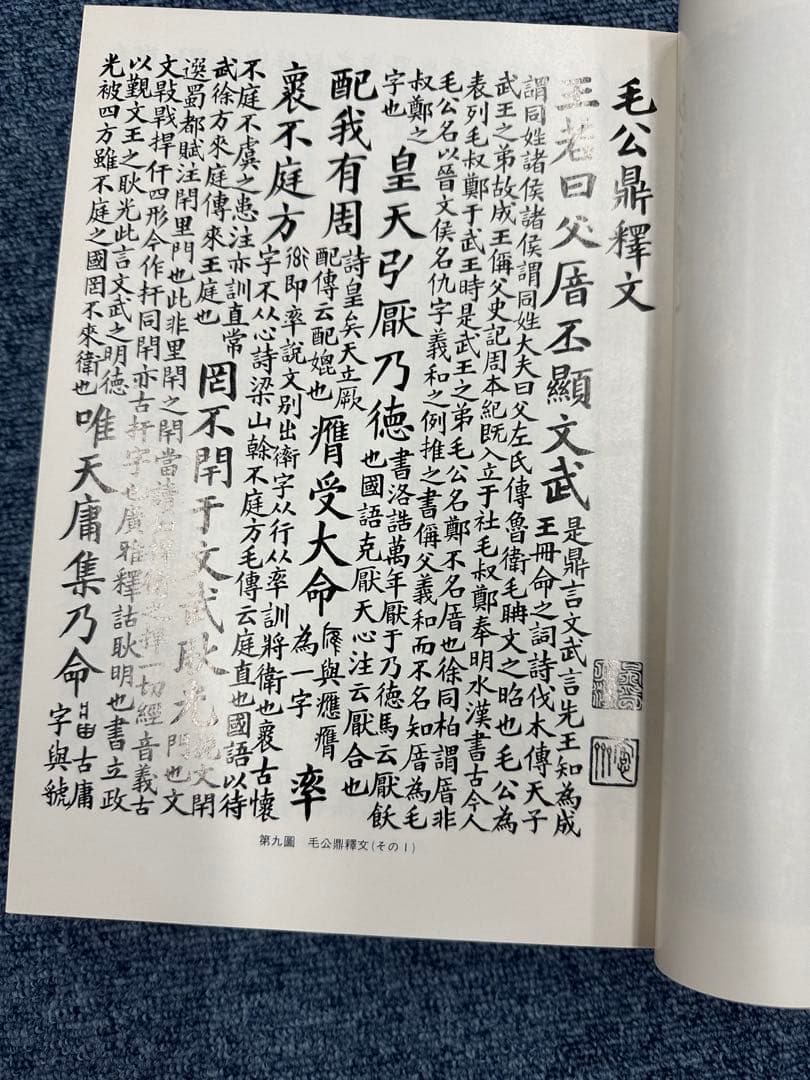 毛公鼎釋文
王若曰父厝丕顯文武
是鼎言文武言先王知為成
王冊命之詞詩伐木傳天子
謂同姓諸侯諸侯謂同姓大夫曰父左氏傳魯衛毛聃文之昭也毛公為
武王之弟故成王偁父史記周本紀既入立于社毛叔鄭奉明水漢書古今人
表列毛叔鄭于武王時是武王之弟毛公名鄭不名厝也徐同柏謂厝非
毛公名以晉文侯名仇字義和之例推之書偁父義和而不名知厝為毛
叔鄭之
字也
皇天弘厭乃德
書洛誥萬年厭于乃德馬云厭飫
也國語克厭天心注云厭合也
配我有周
詩皇矣天立厥
配傳云配媲也
膺受大命
與應膺
為一字
率
褱不庭方
即率說文別出衛字从行从率訓將衛也褱古懷
字不从心詩梁山榦不庭方毛傳云庭直也國語以待
不庭不虞之患注亦訓直常
武徐方來庭傳來王庭也
罔不閈于文武耿光
說文閈
門也文
選蜀都賦注閈里門也此非里閈之閈當讀之捍一切經音義古
文捍仟四形今作扞同閈亦古扞字也廣雅釋詁耿明也書立政
以覲文王之耿光此言文武之明德
光被四方雖不庭之國罔不來衛也
唯天庸集乃命
古庸
字與虢
第九圖　毛公鼎釋文(その1)